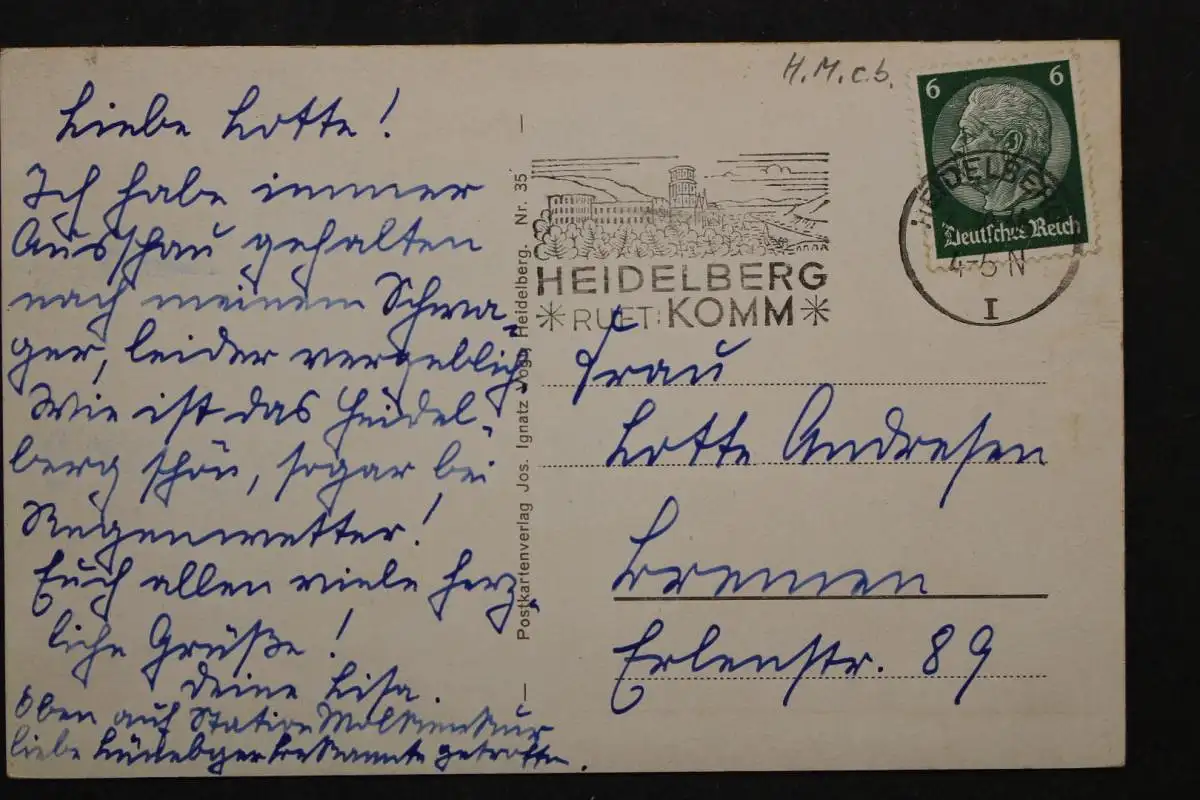 Liebe Lotte!
Ich habe immer
Ausschau gehalten
nach meinem Schwa-
ger, leider vergeblich.
Wie ist das Heidel-
berg schön, sogar bei
Regenwetter!
Euch allen viele herz-
liche Grüße!
Deine Lisa.
Oben auf Station Molkenkur
liebe Bekannte getroffen.
Postkartenverlag Jos. Ignatz Vogt, Heidelberg. Nr. 35
H.M.c.b.
HEIDELBERG
RUFT: KOMM
6 6
Deutsches Reich
HEIDELBERG
4-5 N
I
Frau
Lotte Andresen
Bremen
Erlenstr. 89